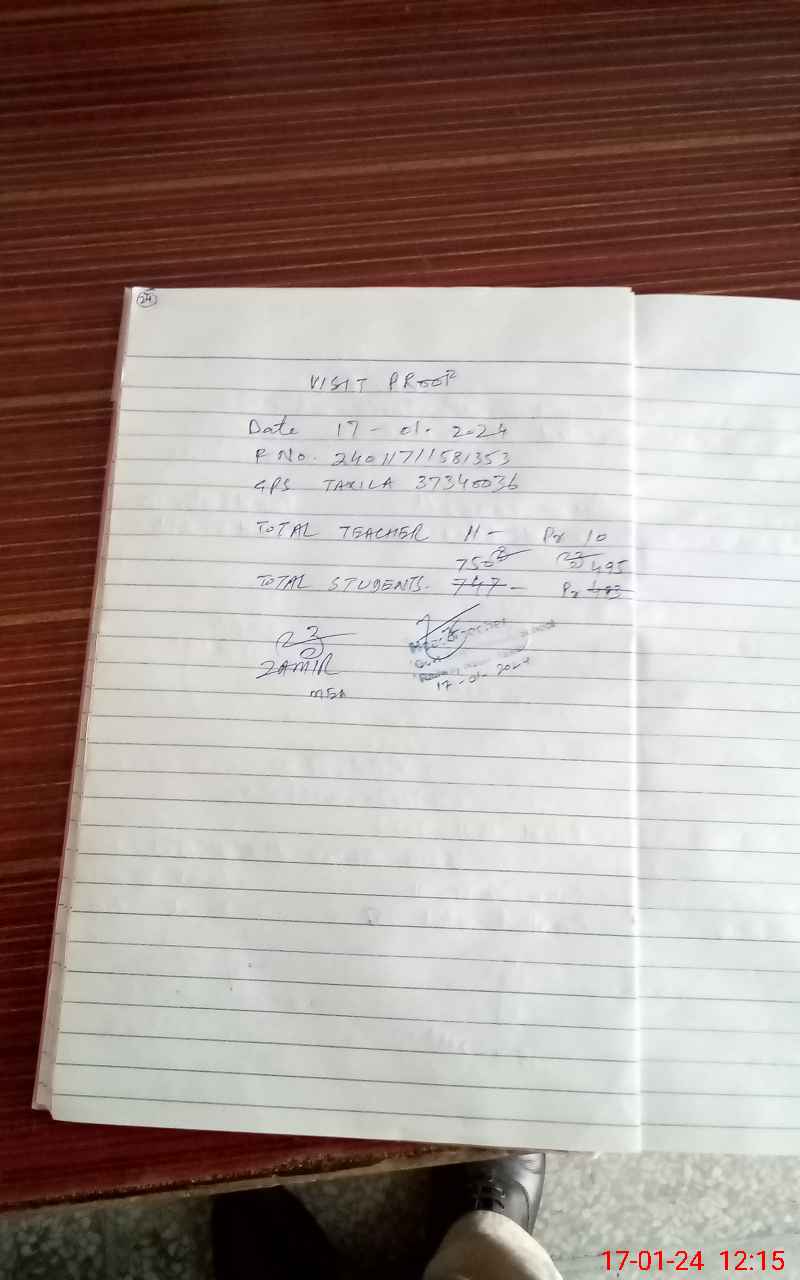 24
VISIT PROOF
Date 17-01-2024
F No. 24011711581353
GPS TAXILA 37340036
TOTAL TEACHER 11 - Pr 10
750 495
TOTAL STUDENTS. 747 - Pr 493
ZAMIR
MEA
17-01-2024
17-01-24 12:15